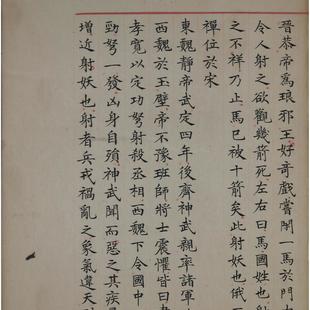 晉恭帝爲琅邪王好奇戲嘗閉一馬於門內
令人射之欲觀幾箭死左右曰馬國姓也射
之不祥乃止馬已被十箭矣此射妖也俄而
禪位於宋
東魏靜帝武定四年後齊神武親率諸軍
西魏於玉壁帝不豫班師將士震懼皆曰
孝寬以定功弩射殺丞相西魏下令國中
勁弩一發凶身自殞神武聞而惡之其疾
增近射妖也射者兵戎禍亂之象氣違天